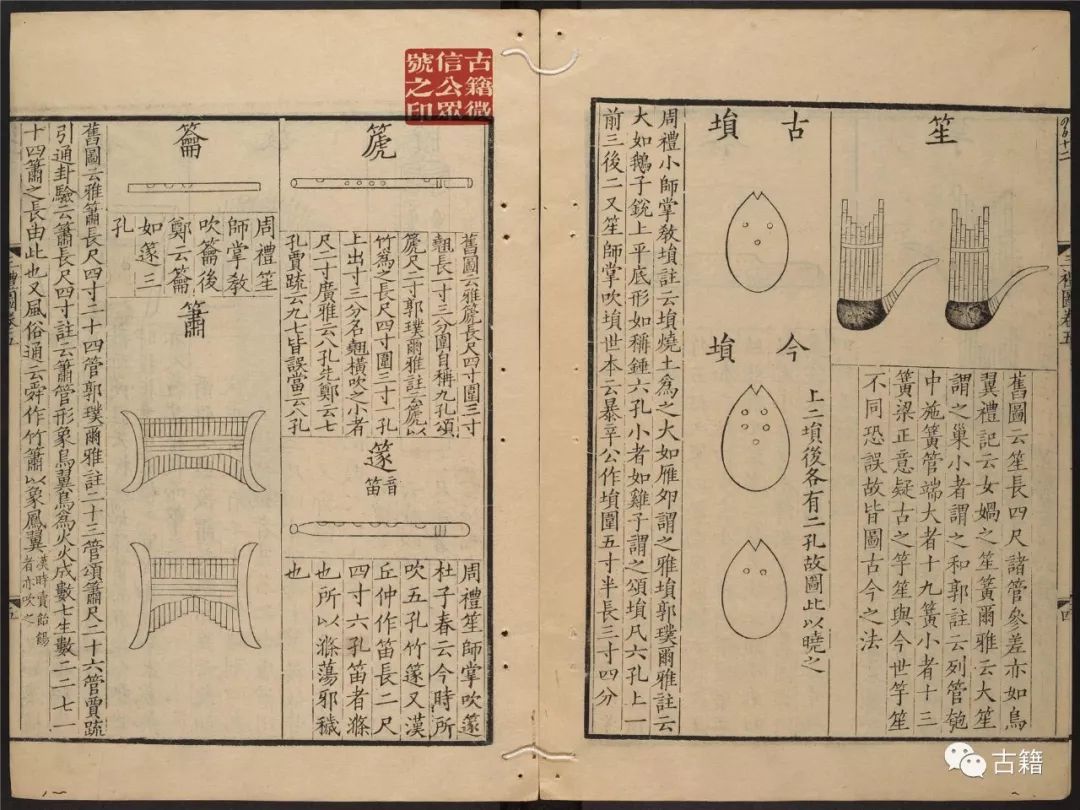 笙
舊圖云笙長四尺諸管參差亦如鳥
翼禮記云女媧之笙簧爾雅云大笙
謂之巢小者謂之和郭註云列管匏
中施簧管端大者十九簧小者十三
簧梁正意疑古之竽笙與今世竽笙
不同恐誤故皆圖古今之法
古塤
今塤
上二塤後各有二孔故圖此以曉之
周禮小師掌教塤註云塤燒土為之大如雁卵謂之雅塤郭璞爾雅註云
大如鵝子銳上平底形如稱錘六孔小者如雞子謂之頌塤凡六孔上一
前三後二又笙師掌吹塤世本云暴辛公作塤圍五寸半長三寸四分
三禮圖卷五
四
古籍微
信公眾
號之印
篪
舊圖云雅篪長尺四寸圍三寸
翹長一寸三分圍自稱九孔頌
篪尺二寸郭璞爾雅註云篪以
竹為之長尺四寸圍三寸一孔
上出寸三分名翹橫吹之小者
尺二寸廣雅云八孔先鄭云七
孔賈疏云九七皆誤當云八孔
篴
音笛
周禮笙師掌吹篴
杜子春云今時所
吹五孔竹篴又漢
丘仲作笛長二尺
四寸六孔笛者滌
也所以滌蕩邪穢
也
籥
周禮笙
師掌教
吹籥後
鄭云籥
如篴三
孔
簫
舊圖云雅簫長尺四寸二十四管郭璞爾雅註二十三管頌簫尺二十六管賈疏
引通卦驗云簫長尺四寸註云簫管形象鳥翼鳥為火火成數七生數二二七一
十四簫之長由此也又風俗通云舜作竹簫以象鳳翼漢時賣飴餳
者亦吹之
五
古籍